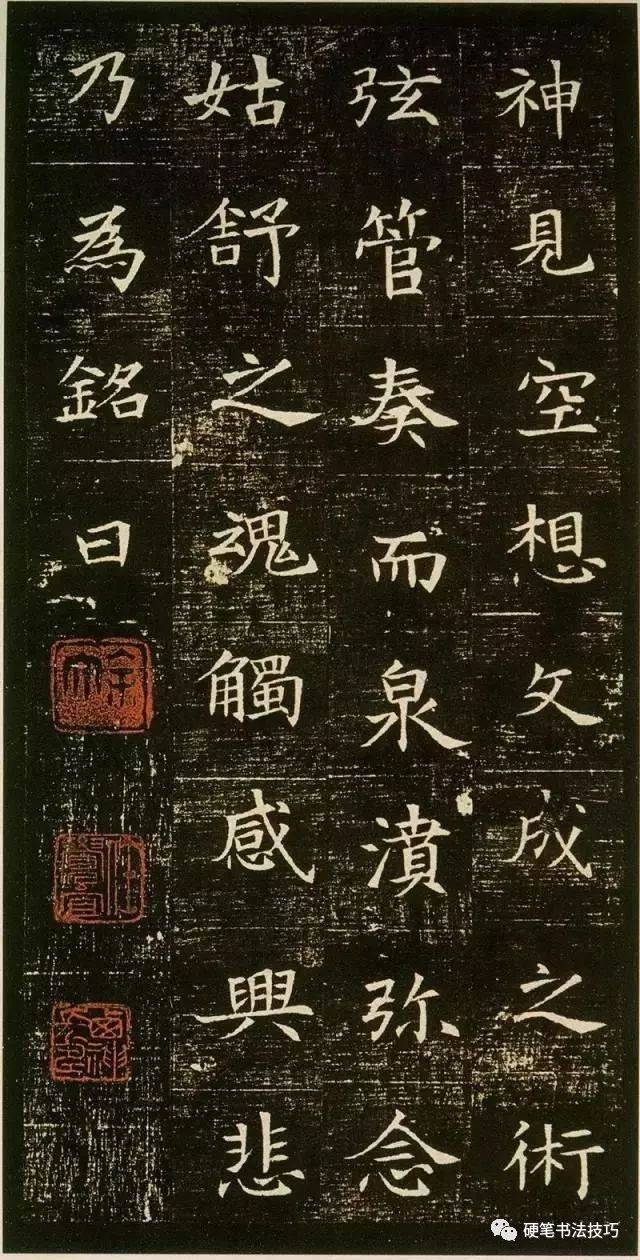 神見空想文成之術
弦管奏而泉濆弥念
姑舒之魂觸感興悲
乃為銘曰
硬笔书法技巧